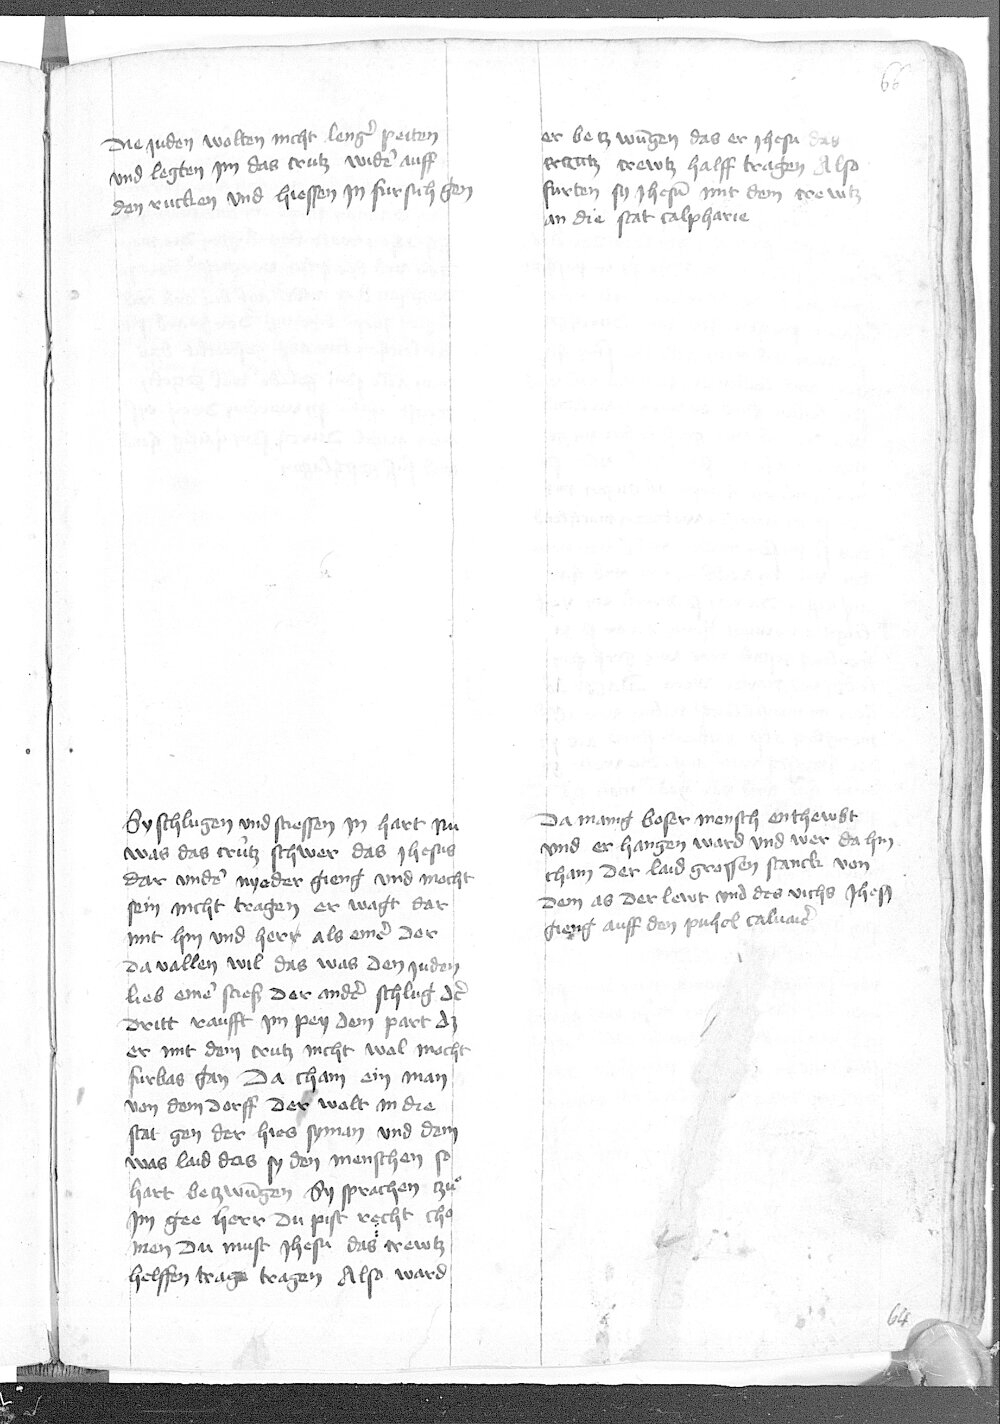 66
Die juden wolten nicht leng̃ peiten
vnd legten jm das crutz widẽ auff
den rucken vnd hiessen jn fursich gen
Sy schlugen vnd stiessen jn hart Nu
was das crůtz schwer das jhesus
dar vndẽ nyeder gieng vnd mocht
sein nicht tragen er wagt dar
mit hin vnd herr als einẽ der
da vallen wil das was den juden
lieb einẽ stiesz der andẽ schlug dẽ
dritt raufft jm pey dem part dz
er mit dem crutz nicht wol mocht
furbas gan Da cham ein man
von dem dorff Der wolt in die
stat gen der hies syman vnd dem
was laid das sy den menschen so
hart betzwūgen Sy sprachen tzů
jm gee herr Du pist recht cho
men Du must jhesu das crewtz
helffen trage tragen Also ward
er betzwūgen das er jhesu das
crutz crewtz halff tragen Also
furten sy jhesū mit dem crewtz
an die stat calpharie
Da manig boser mensch enthewbt
vnd er hangen ward vnd wer da hin
cham Der laid grossen stanck von
dem as der lewt vnd des vichs Jhesꝯ
gieng auff den puhel caluariẽ
64